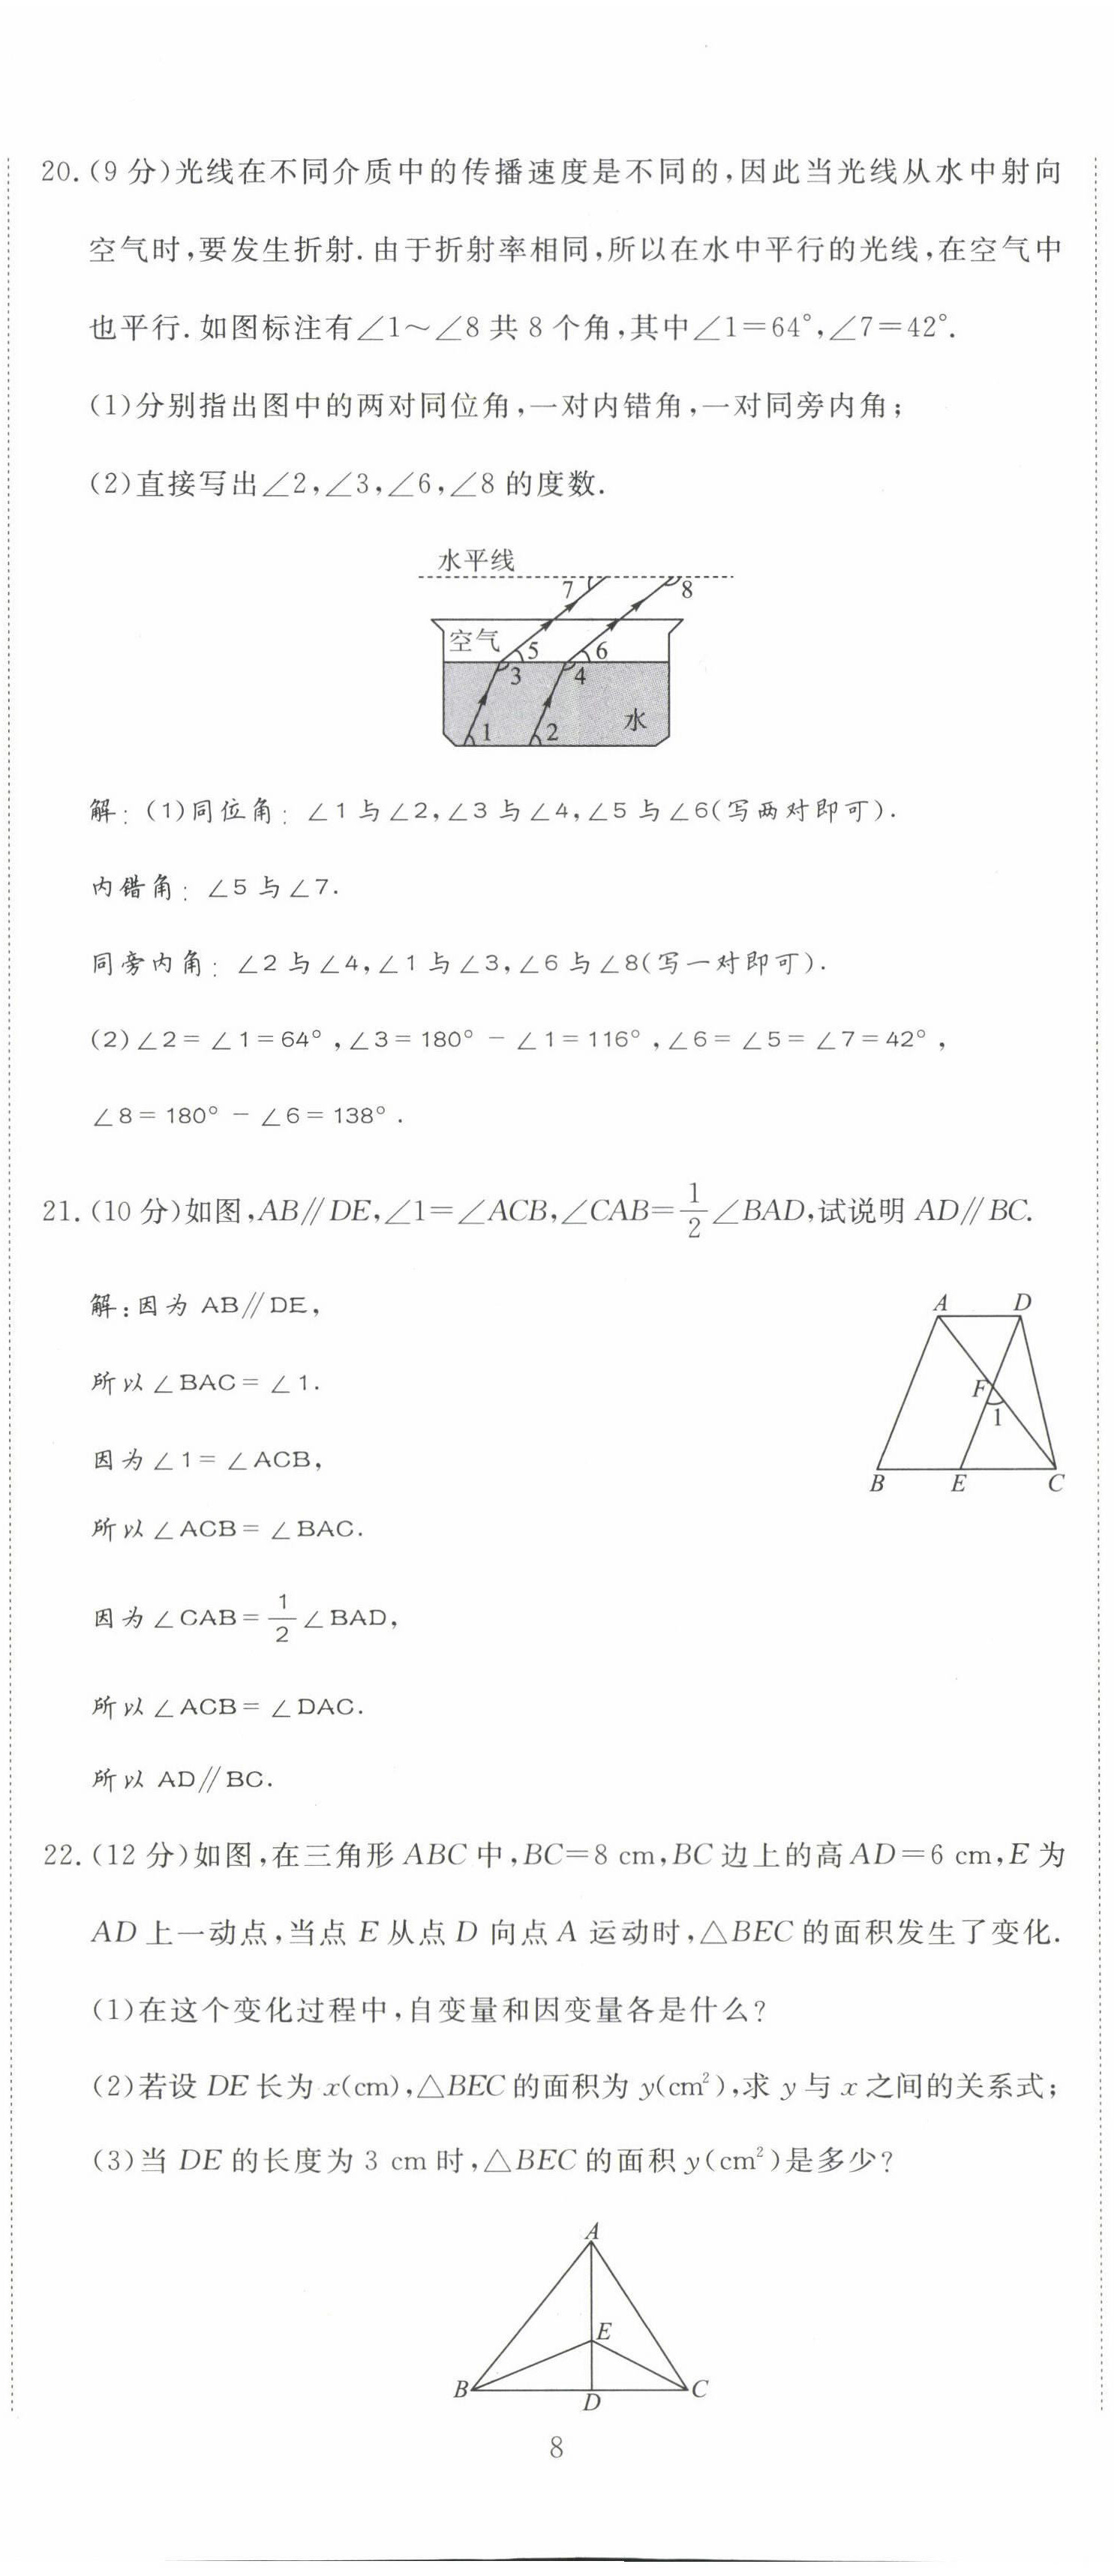 20.(9 分)光线在不同介质中的传播速度是不同的,因此当光线从水中射向
空气时,要发生折射.由于折射率相同,所以在水中平行的光线,在空气中
也平行.如图标注有∠1～∠8 共 8 个角,其中∠1=64°,∠7=42°.
(1)分别指出图中的两对同位角,一对内错角,一对同旁内角;
(2)直接写出∠2,∠3,∠6,∠8 的度数.
水平线
7 8
空气 5 6
3 4
水
1 2
解:(1)同位角:∠1 与∠2,∠3 与∠4,∠5 与∠6(写两对即可).
内错角:∠5 与∠7.
同旁内角:∠2 与∠4,∠1 与∠3,∠6 与∠8(写一对即可).
(2)∠2=∠1=64°,∠3=180°-∠1=116°,∠6=∠5=∠7=42°,
∠8=180°-∠6=138°.
21.(10 分)如图,AB∥DE,∠1=∠ACB,∠CAB=1/2∠BAD,试说明 AD∥BC.
解:因为 AB∥DE,
所以∠BAC=∠1.
因为∠1=∠ACB,
所以∠ACB=∠BAC.
因为∠CAB=1/2∠BAD,
所以∠ACB=∠DAC.
所以 AD∥BC.
A D
F
1
B E C
22.(12 分)如图,在三角形 ABC 中,BC=8 cm,BC 边上的高 AD=6 cm,E 为
AD 上一动点,当点 E 从点 D 向点 A 运动时,△BEC 的面积发生了变化.
(1)在这个变化过程中,自变量和因变量各是什么?
(2)若设 DE 长为 x(cm),△BEC 的面积为 y(cm²),求 y 与 x 之间的关系式;
(3)当 DE 的长度为 3 cm 时,△BEC 的面积 y(cm²)是多少?
A
E
B D C
8